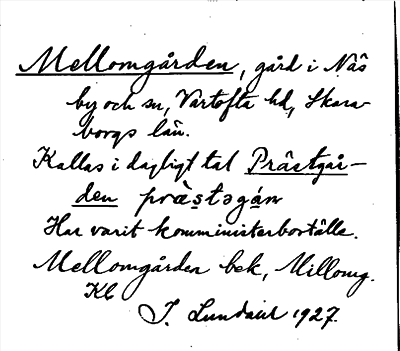 Mellomgården, gård i Näs
by och sn, Vartofta hd, Skara-
borgs län.
Kallas i dagligt tal Prästgår-
den prὰstəgán
Har varit komministerboställe.
Mellomgården bek, Millomg.
Kl
J. Lundahl 1927.